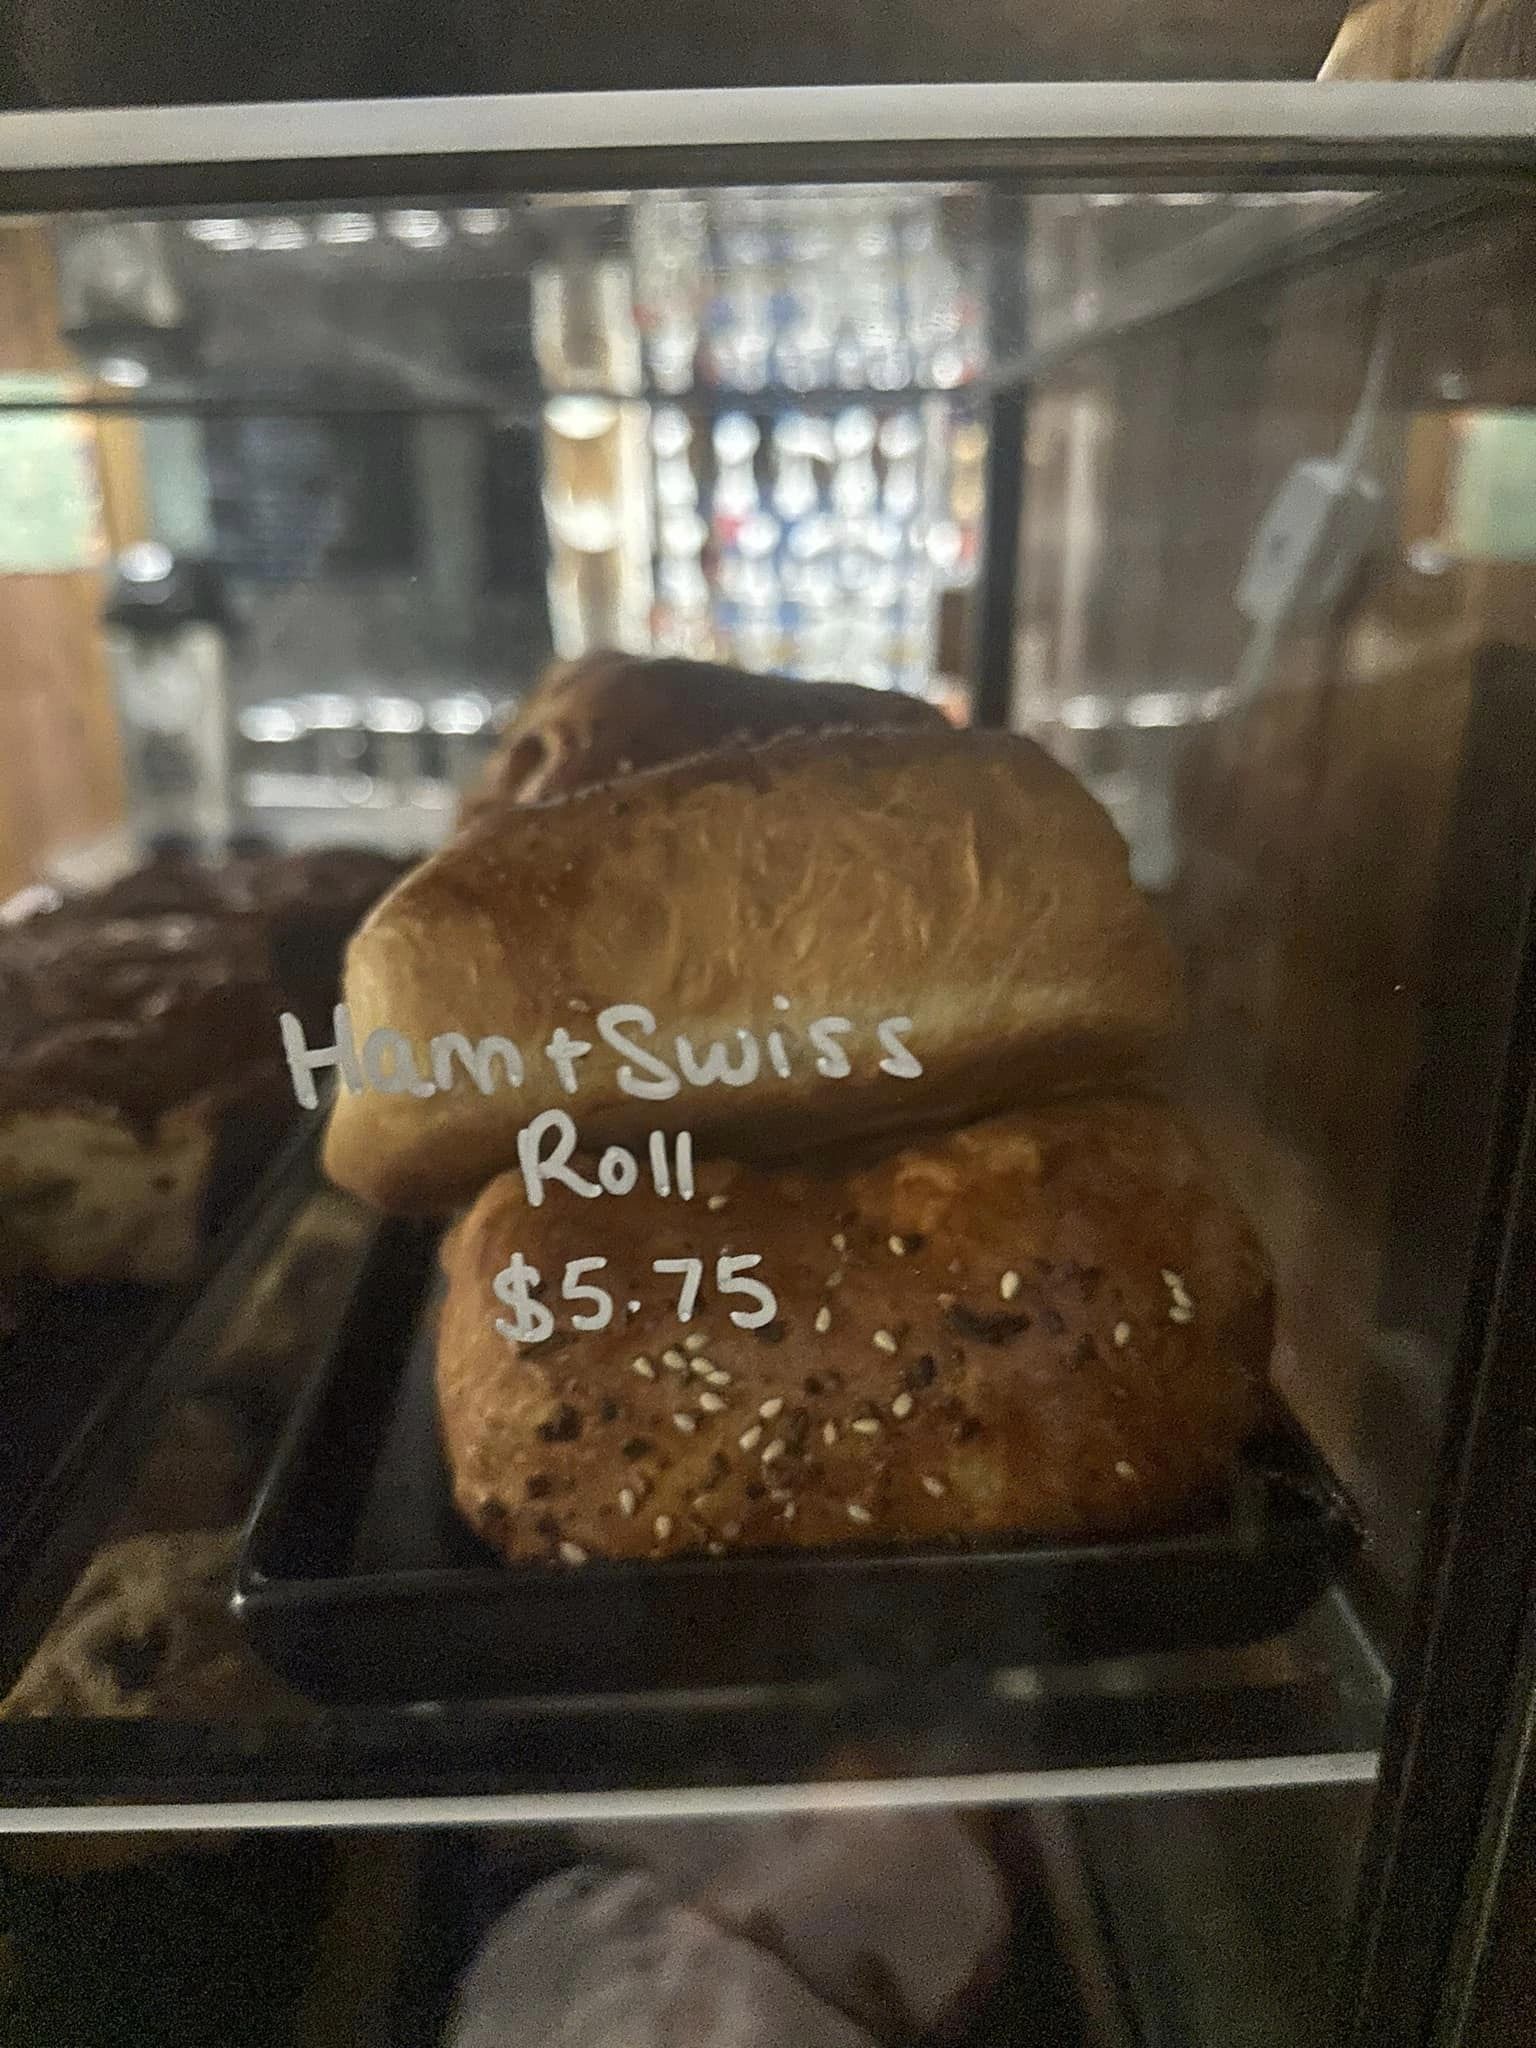 Ham + Swiss
Roll
$5.75